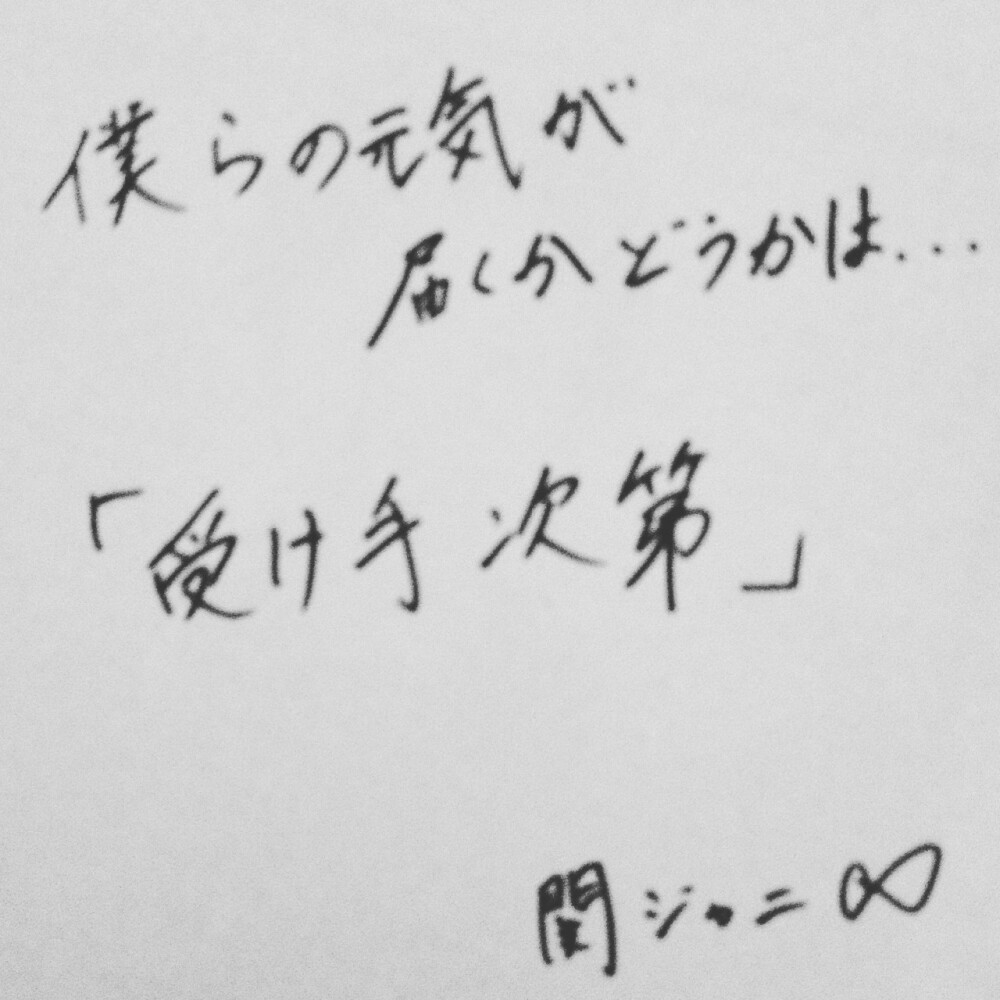 僕らの元気が
届くかどうかは...
「受け手次第」
関ジャニ∞